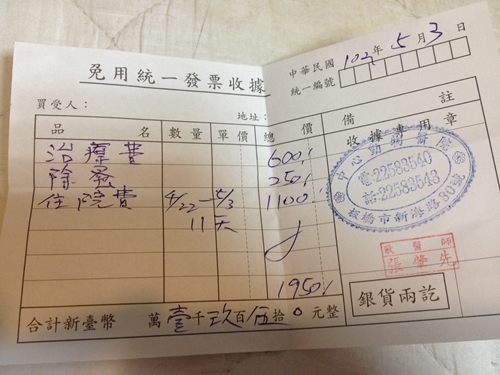 免用統一發票收據
中華民國102年5月3日
統一編號
買受人：
地址：
品名 數量 單價 總價 備註
治療費 600,-
除蚤 250,-
住院費 4/22-5/3 1100,-
11天
1950,-
合計新臺幣 萬壹千玖百伍拾0元整
收據專用章
中心動物醫院
電:22583540
話:22583543
板橋市新海路80號
獸醫師
張學先
銀貨兩訖